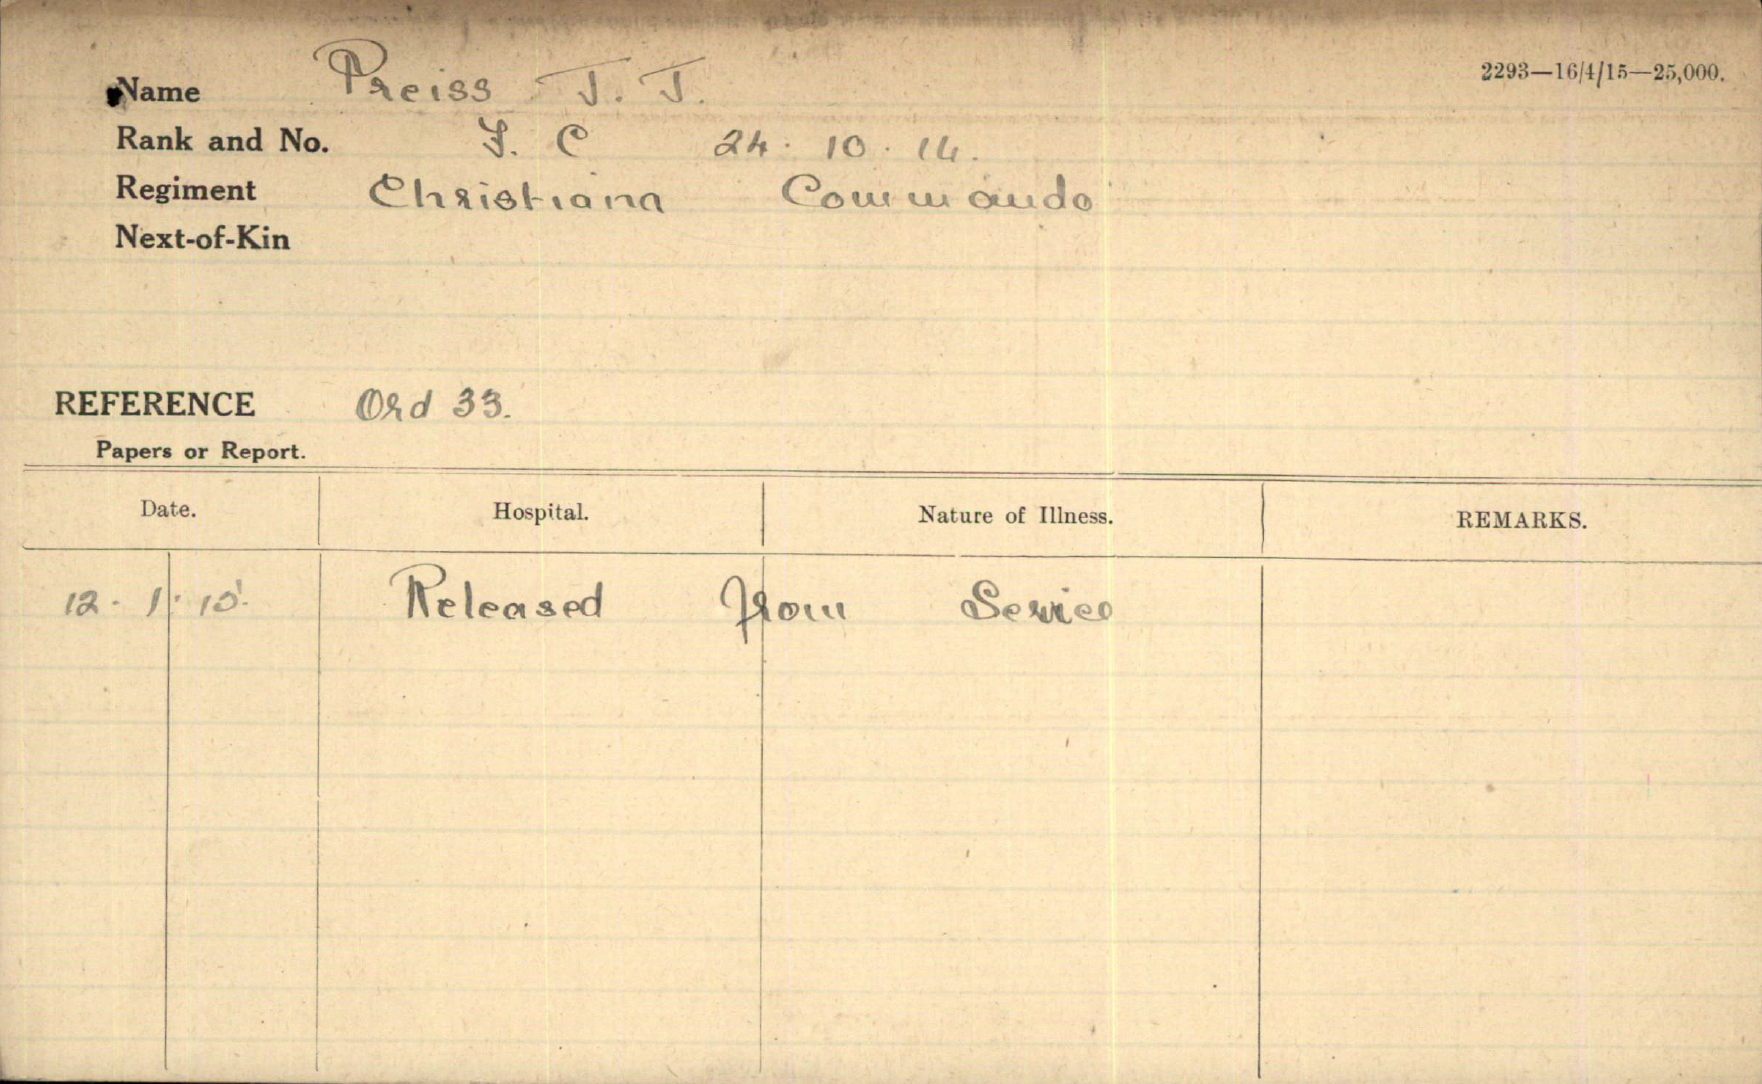 2293—16/4/15—25,000.
Name Preiss J. J.
Rank and No. F. C 24. 10. 14.
Regiment Christiana Commando
Next-of-Kin
REFERENCE Ord 33.
Papers or Report.
Date. Hospital. Nature of Illness. REMARKS.
12. 1. 15. Released from Service